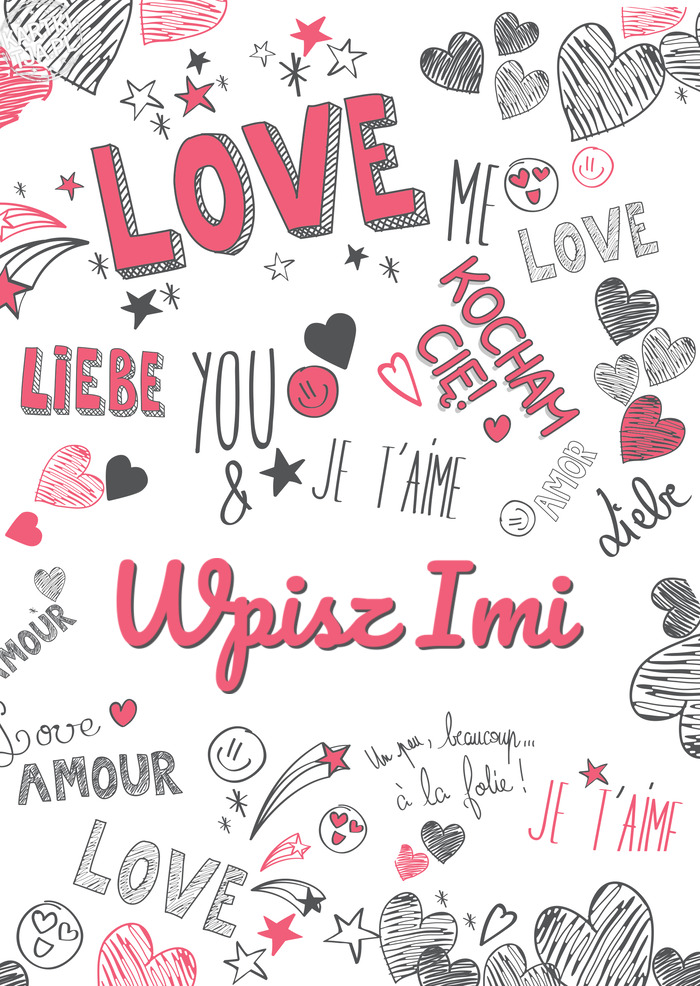 LOVE
ME
LOVE
KOCHAM
CIĘ!
LiEBE
YOU
&
JE T'AIME
AMOR
Liebe
Wpisz Imi
AMOUR
Love
AMOUR
Un peu, beaucoup...
à la folie!
JE T'AIME
LOVE